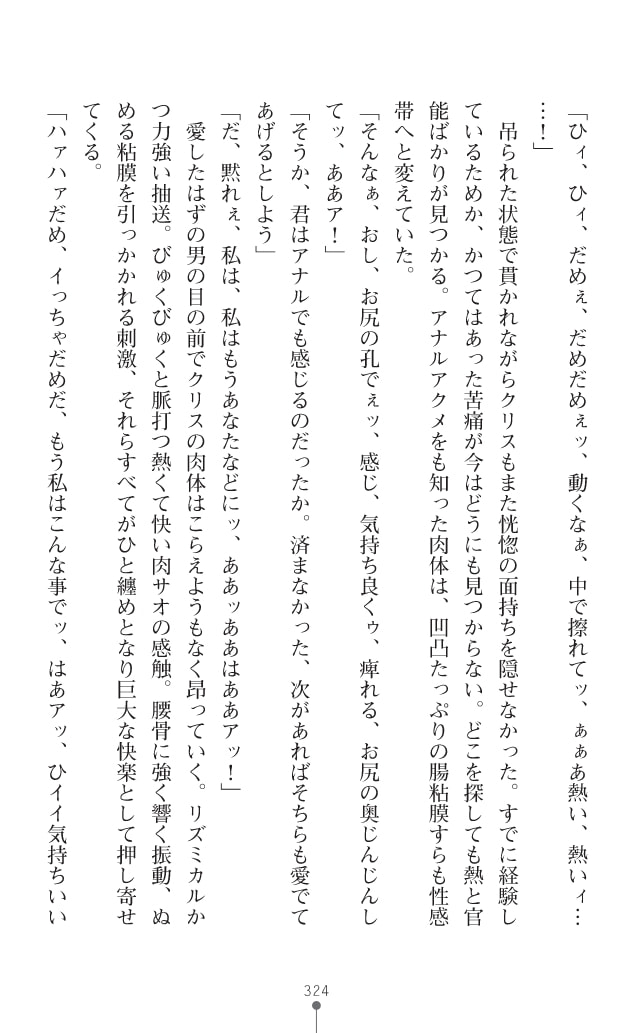 「ひィ、ひィ、だめぇ、だめだめぇッ、動くなぁ、中で擦れてッ、ぁぁあ熱い、熱いィ…
…！」
　吊られた状態で貫かれながらクリスもまた恍惚の面持ちを隠せなかった。すでに経験し
ているためか、かつてはあった苦痛が今はどうにも見つからない。どこを探しても熱と官
能ばかりが見つかる。アナルアクメをも知った肉体は、凹凸たっぷりの腸粘膜すらも性感
帯へと変えていた。
「そんなぁ、おし、お尻の孔でぇッ、感じ、気持ち良くぅ、痺れる、お尻の奥じんじんし
てッ、ああア！」
「そうか、君はアナルでも感じるのだったか。済まなかった、次があればそちらも愛でて
あげるとしよう」
「だ、黙れぇ、私は、私はもうあなたなどにッ、ああッああはああアッ！」
　愛したはずの男の目の前でクリスの肉体はこらえようもなく昂っていく。リズミカルか
つ力強い抽送。びゅくびゅくと脈打つ熱くて快い肉サオの感触。腰骨に強く響く振動、ぬ
める粘膜を引っかかれる刺激、それらすべてがひと纏めとなり巨大な快楽として押し寄せ
てくる。
「ハァハァだめ、イっちゃだめだ、もう私はこんな事でッ、はあアッ、ひイイ気持ちいい
324